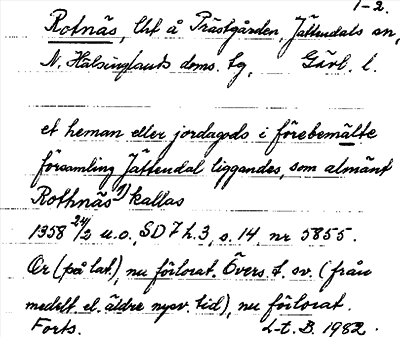 1-2.
Rotnäs, Ut å Prästgården, Jättendals sn,
N. Hälsinglands doms. tg, Gävl. l.
et heman eller jordagods i förebemälte
församling Jättendal liggandes, som almänt
Rothnäs 1) kallas
1358 24/2 u.o., SD 7 h.3, s. 14, nr 5855.
Or (på lat.), nu förlorat. Övers. t. sv. (från
medelt. el. äldre nysv. tid), nu förlorat.
Forts. L-t. B. 1982.